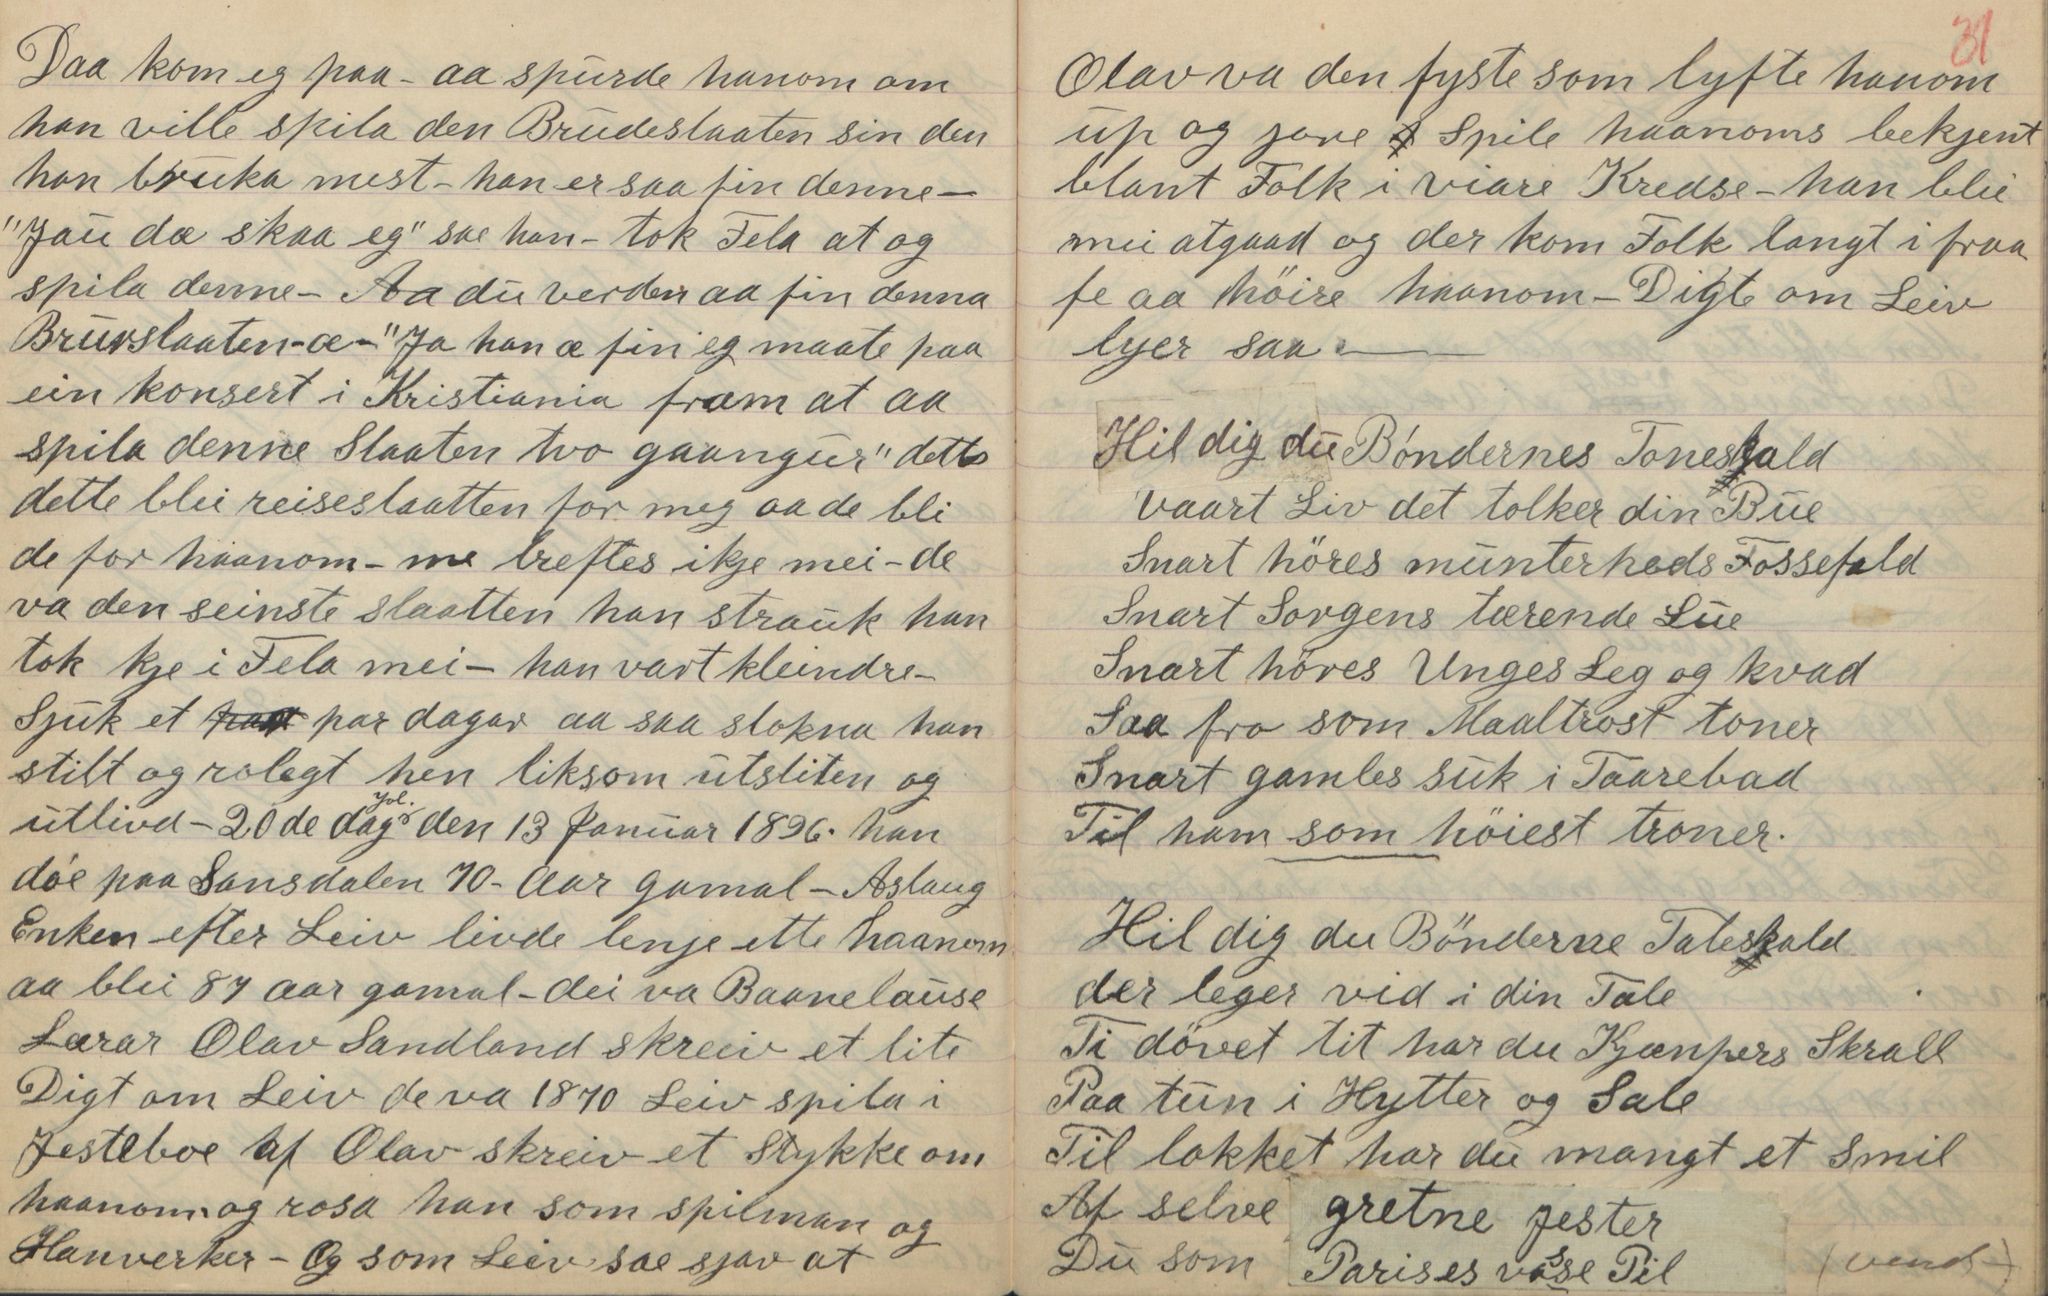 Daa kom eg paa - aa spurde hanom om
han ville spila den Brudeslaaten sin den
han bruka mest - han er saa fin denne -
"Jau dæ skaa eg" sae han - tok Fela at og
spila denne - Aa du verden aa fin denna
Brurslaaten - æ - "Ja han æ fin eg maate paa
ein konsert i Kristiania fram at aa
spila denne Slaaten tvo gaangur" dette
dette blei reiseslaatten for meg aa de bli
de for haanom - me treftes ikje mei - de
va den seinste slaatten han strauk han
tok kje i Fela mei - han vart kleindre -
Sjuk et par dagar aa saa slokna han
stilt og rolegt hen liksom utsliten og
utlivd - 20de dag Jol. den 13 Januar 1896. han
döe paa Sansdalen 70 - Aar gamal - Aslaug
Enken efter Leiv livde lenje ette haanom
aa blei 87 aar gamal - dei va Baanelause
Lærar Olav Sandland skreiv et lite
Digt om Leiv de va 1870 Leiv spila i
Jesteboe af Olav skreiv et Stykke om
haanom og rosa han som spilman og
Hanverker - Og som Leiv sae sjav at
31
Olav va den fyste som lyfte hanom
up og jore Spile haanoms bekjent
blant Folk i viare Kredse - han blei
mei atgaad og der kom Folk langt i fraa
fe aa höire haanom - Digte om Leiv
lyer saa
Hil dig du Bøndernes Toneskald
vaart Liv det tolker din Bue
Snart höres munterheds Fossefald
Snart Sorgens tærende Lue
Snart höres Unges Leg og kvad
Saa fro som Maaltrost toner
Snart gamles suk i Taarebad
Til ham som höiest troner.
Hil dig du Bönderne Taleskald
der leger vid i din Tale
Ti dövet tit har du Kjæmpers Skrall
Paa tun i Hytter og Sale
Til lokket har du mangt et Smil
Af selve gretne Jester
Du som Parises vasse Pil
(vend -)